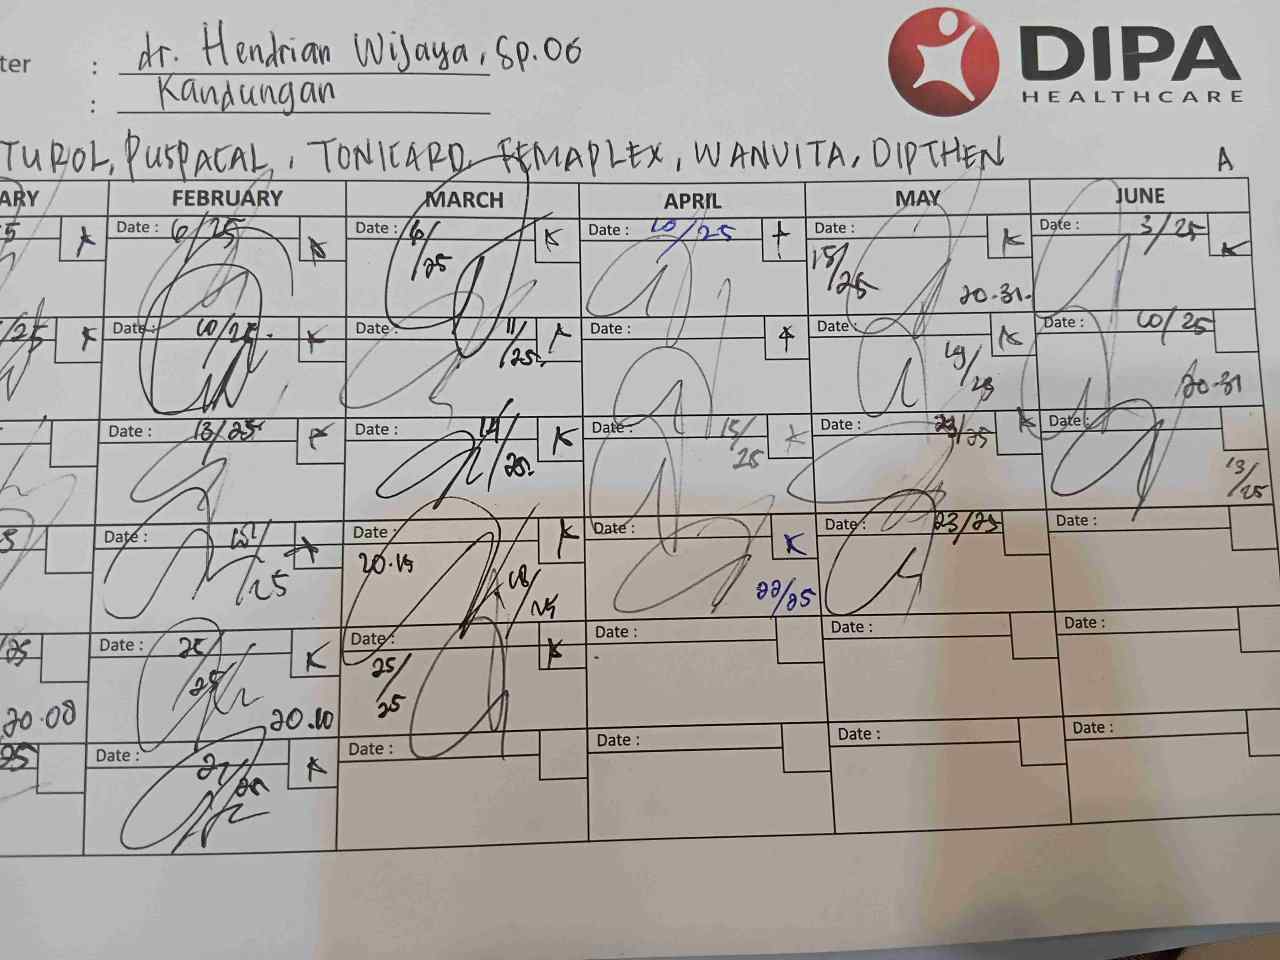 ter : dr. Hendrian Wijaya, Sp.OG
: Kandungan
DIPA
HEALTHCARE
TUROL, PUSPACAL, TONICARD, FEMAPLEX, WANVITA, DIPTHEN A
ARY FEBRUARY MARCH APRIL MAY JUNE
Date : 6/25 Date : 6/25 K Date : 10/25 Date : 15/25 K 20.31. Date : 3/25 K
/25 Date : 10/25 K Date : 11/25 Date : Date : 19/25 K Date : 10/25 20.31
Date : 13/25 Date : 14/25. K Date : 15/25 K Date : 22/25 K Date : 13/25
Date : /25 Date : 20.15 18/25 K Date : K 22/25 Date : 23/25 Date :
/25 20.08 Date : 25/25 K 20.10 Date : 25/25 K Date : Date : Date :
25 Date : 27/25 K Date : Date : Date : Date :